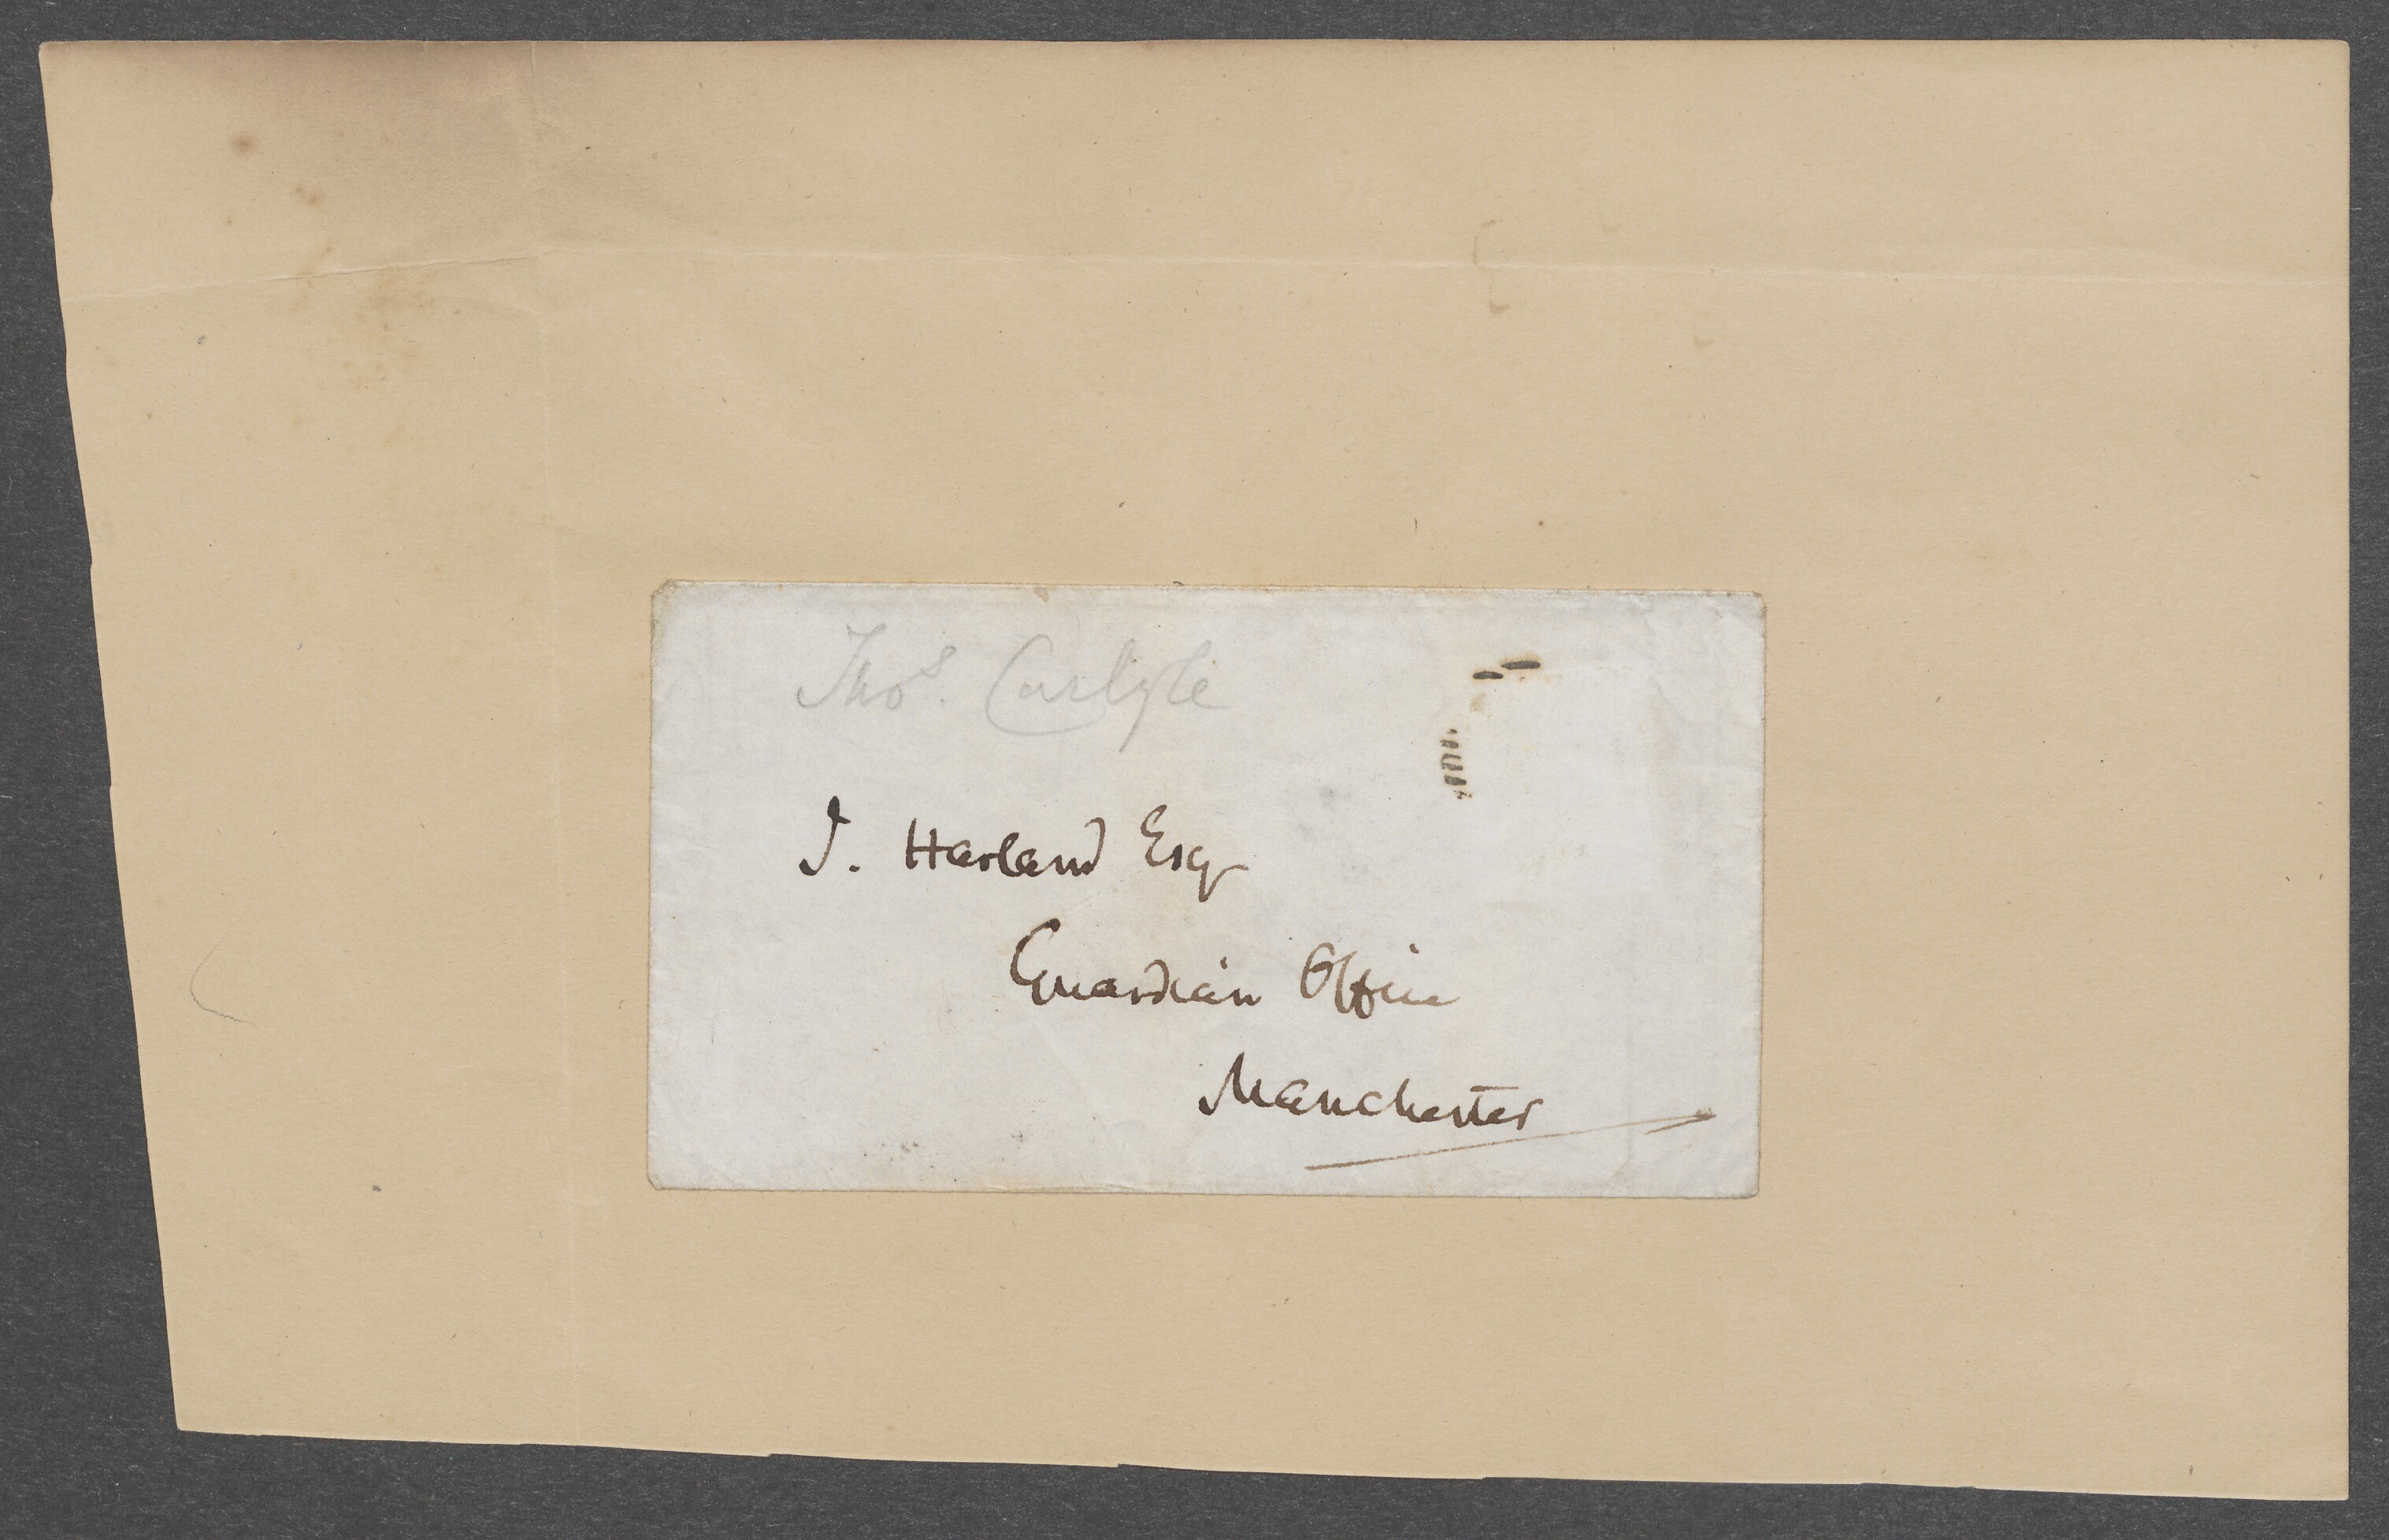 Thos. Carlyle
J. Harland Esq
Guardian Office
Manchester